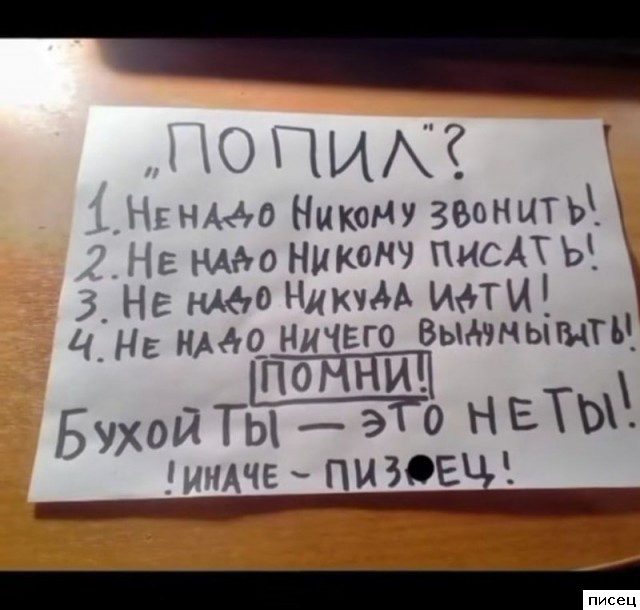 „ПОПИЛ"?
1. НЕ НАДО НИКОМУ ЗВОНИТЬ!
2. НЕ НАДО НИКОМУ ПИСАТЬ!
3. НЕ НАДО НИКУДА ИДТИ!
4. НЕ НАДО НИЧЕГО ВЫДУМЫВАТЬ!
ПОМНИ!
БУХОЙ ТЫ — ЭТО НЕ ТЫ!
!ИНАЧЕ - ПИЗ●ЕЦ!
писец